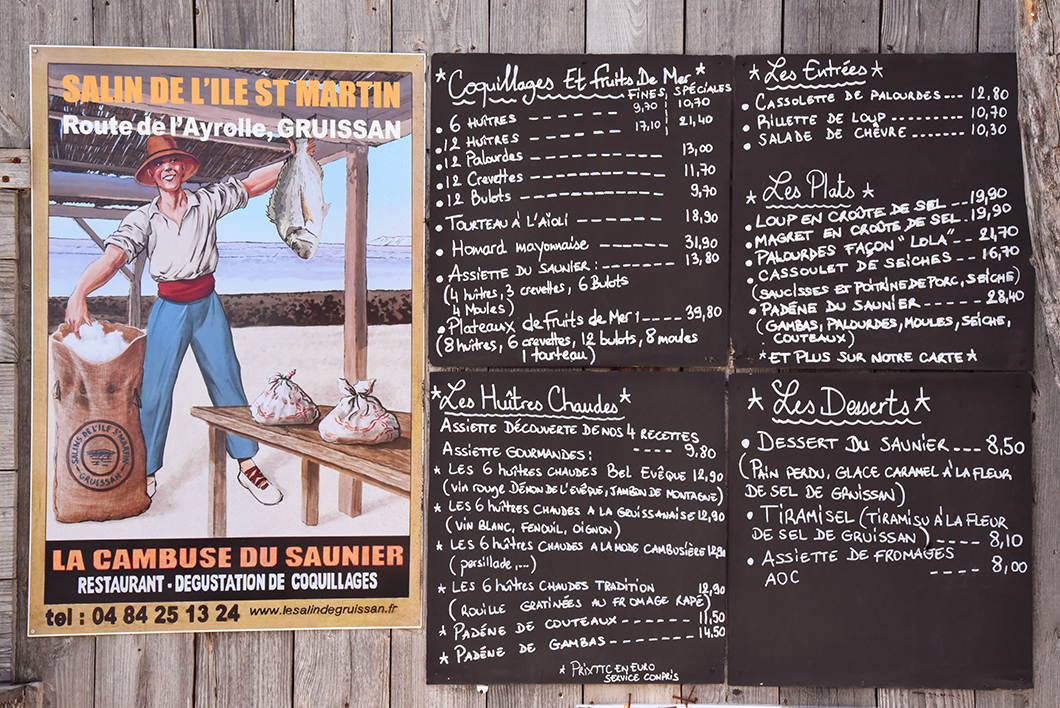 SALIN DE L'ILE ST MARTIN
Route de l'Ayrolle, GRUISSAN
SALINS DE L'ILE ST MARTIN
GRUISSAN
LA CAMBUSE DU SAUNIER
RESTAURANT - DEGUSTATION DE COQUILLAGES
tel : 04 84 25 13 24 www.lesalindegruissan.fr
* Coquillages Et fruits De Mer *
FINES, SPÉCIALES
• 6 HUÎTRES ------ 9,70 | 10,70
• 12 HUÎTRES ------ 17,10 | 21,40
• 12 Palourdes ------------ 13,00
• 12 Crevettes ------------ 11,70
• 12 Bulots ------------ 9,70
• TOURTEAU À L'AÏOLI ------- 18,90
• Homard mayonnaise ------- 31,90
• ASSIETTE DU SAUNIER : ------- 13,80
(4 huîtres, 3 crevettes, 6 Bulots
4 Moules)
• Plateaux de fruits de Mer 1 ---- 39,80
(8 huîtres, 6 crevettes, 12 bulots, 8 moules
1 tourteau)
* Les Huîtres Chaudes *
ASSIETTE DÉCOUVERTE DE NOS 4 RECETTES
---- 9,80
ASSIETTE GOURMANDES :
* LES 6 HUÎTRES CHAUDES BEL EVÊQUE 12,90
(VIN ROUGE DÉMON DE L'EVÊQUE, JAMBON DE MONTAGNE)
* LES 6 HUÎTRES CHAUDES A LA GRUISSANAISE 12,90
(VIN BLANC, FENOUIL, OIGNON)
* LES 6 HUÎTRES CHAUDES A LA MODE CAMBUSIÈRE 12,90
(persillade, ...)
* LES 6 HUÎTRES CHAUDES TRADITION 12,90
(ROUILLE GRATINÉES AU FROMAGE RAPÉ)
* PADÉNE DE COUTEAUX ------- 11,50
* PADÉNE DE GAMBAS ------- 14,50
* PRIX TTC EN EURO
SERVICE COMPRIS
* Les Entrées *
• CASSOLETTE DE PALOURDES --- 12,80
• RILLETTE DE LOUP ---------- 10,70
• SALADE DE CHÈVRE -------- 10,30
* Les Plats *
• LOUP EN CROÛTE DE SEL --- 19,90
• MAGRET EN CROÛTE DE SEL -- 19,90
• PALOURDES FAÇON "LOLA" -- 21,70
• CASSOULET DE SEICHES --- 16,70
(SAUCISSES ET POITRINE DE PORC, SEICHE)
• PADÉNE DU SAUNIER ------ 28,40
(GAMBAS, PALOURDES, MOULES, SEICHE,
COUTEAUX)
* ET PLUS SUR NOTRE CARTE *
* Les Desserts *
• DESSERT DU SAUNIER --- 8,50
(PAIN PERDU, GLACE CARAMEL À LA FLEUR
DE SEL DE GRUISSAN)
• TIRAMISEL (TIRAMISU À LA FLEUR
DE SEL DE GRUISSAN) ---- 8,10
• ASSIETTE DE FROMAGES
AOC ---- 8,00